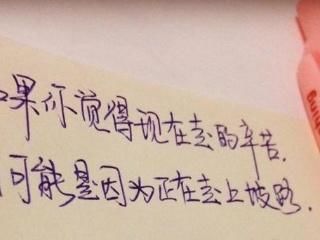 如果你觉得现在走的辛苦.
可能是因为正在走上坡路.